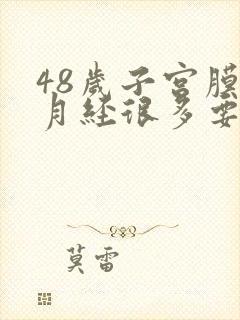 48歲子宮膜
月经很多要
莫雷